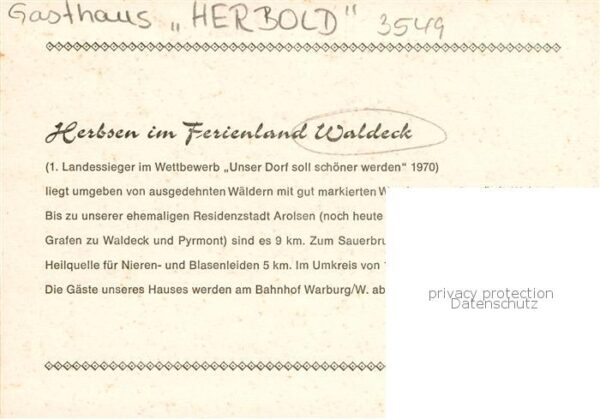 Gasthaus „HERBOLD" 3549
Herbsen im Ferienland Waldeck
(1. Landessieger im Wettbewerb „Unser Dorf soll schöner werden" 1970)
liegt umgeben von ausgedehnten Wäldern mit gut markierten
Bis zu unserer ehemaligen Residenzstadt Arolsen (noch heute
Grafen zu Waldeck und Pyrmont) sind es 9 km. Zum Sauerbru
Heilquelle für Nieren- und Blasenleiden 5 km. Im Umkreis von
Die Gäste unseres Hauses werden am Bahnhof Warburg/W. ab
privacy protection
Datenschutz